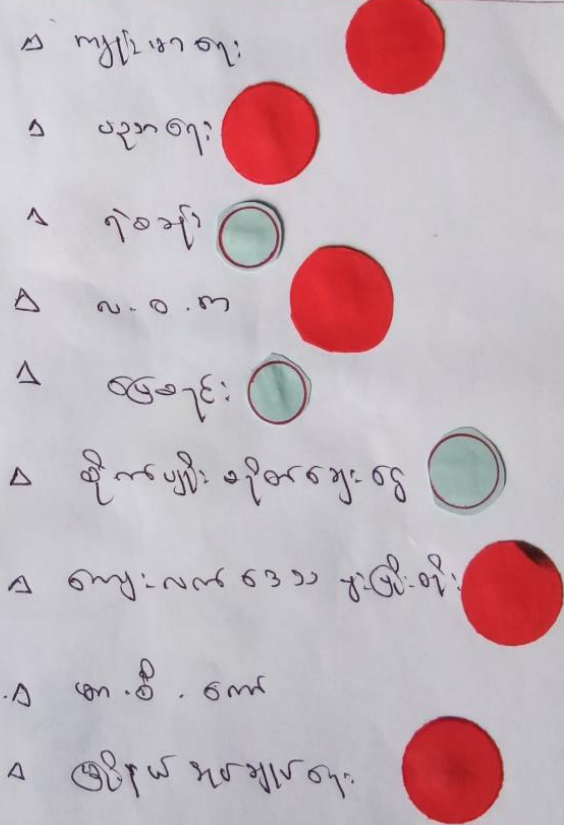 ကျန်းမာရေး
ပညာရေး
ရဲစခန်း
လ.ဝ.က
မြေစာရင်း
စိုက်ပျိုး စရိတ်ချေးငွေ
ကျေးလက် ဒေသ ဖွံ့ဖြိုးတိုး
မြို့နယ် အုပ်ချုပ်ရေး